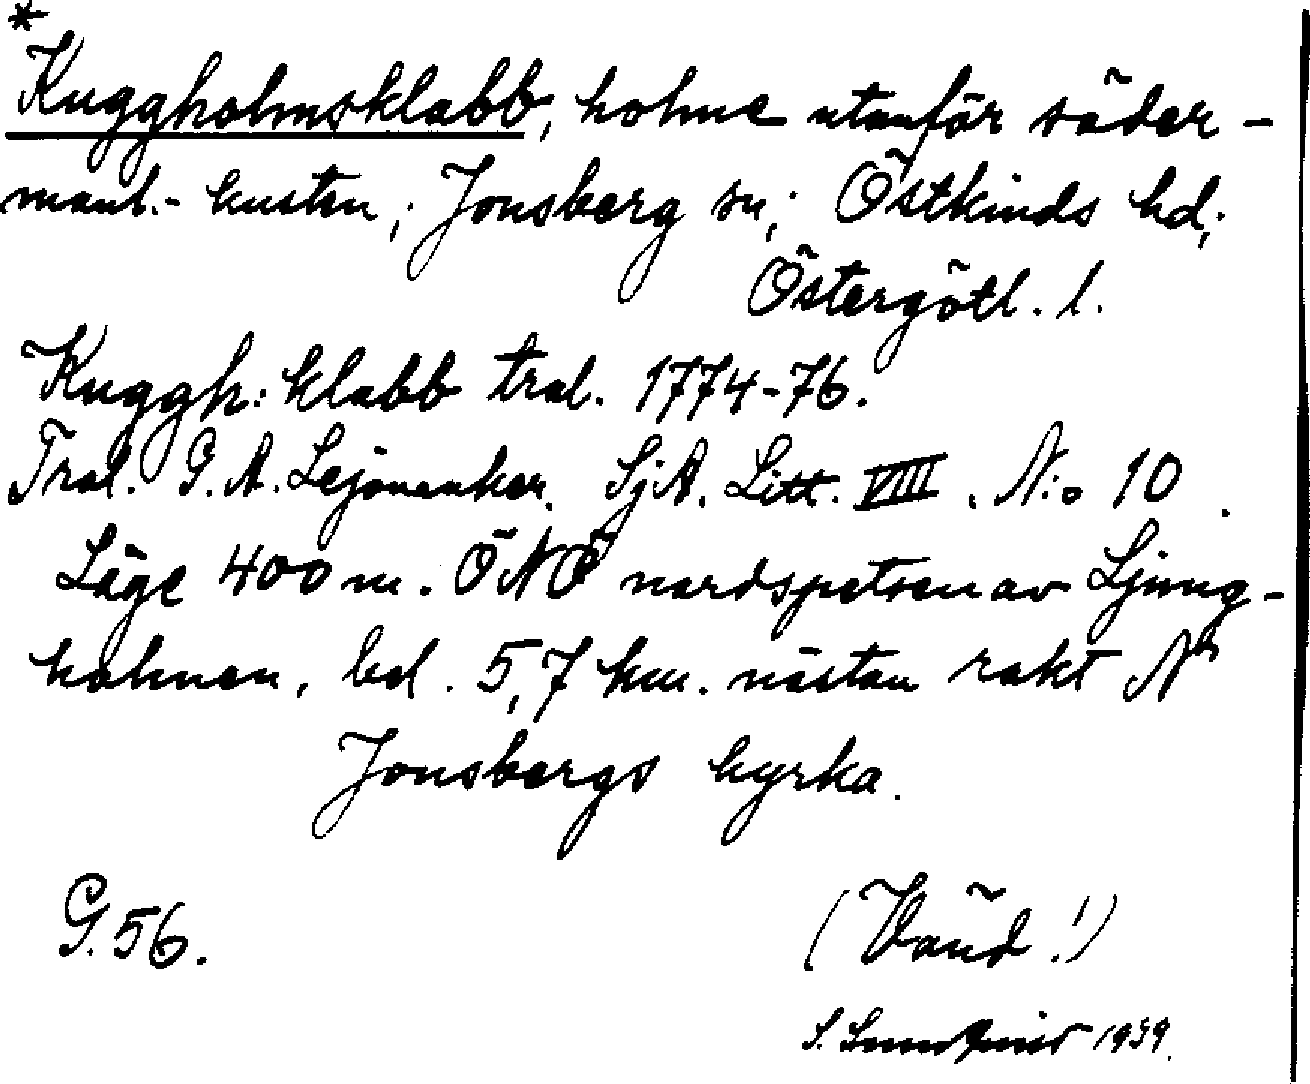 *
Kuggholmsklabb, holme utanför söder-
manl.- kusten; Jonsberg sn; Östkinds hd;
Östergötl. l.
Kuggh: klabb tral. 1774-76.
Tral. G. A. Lejonanker. SjA. Litt. VIII. N:o 10.
Läge 400 m. ÖNÖ nordspetsen av Ljung-
holmen, bel. 5,7 km. nästan rakt N
Jonsbergs kyrka.
G. 56.
(Vänd!)
S. 1939.